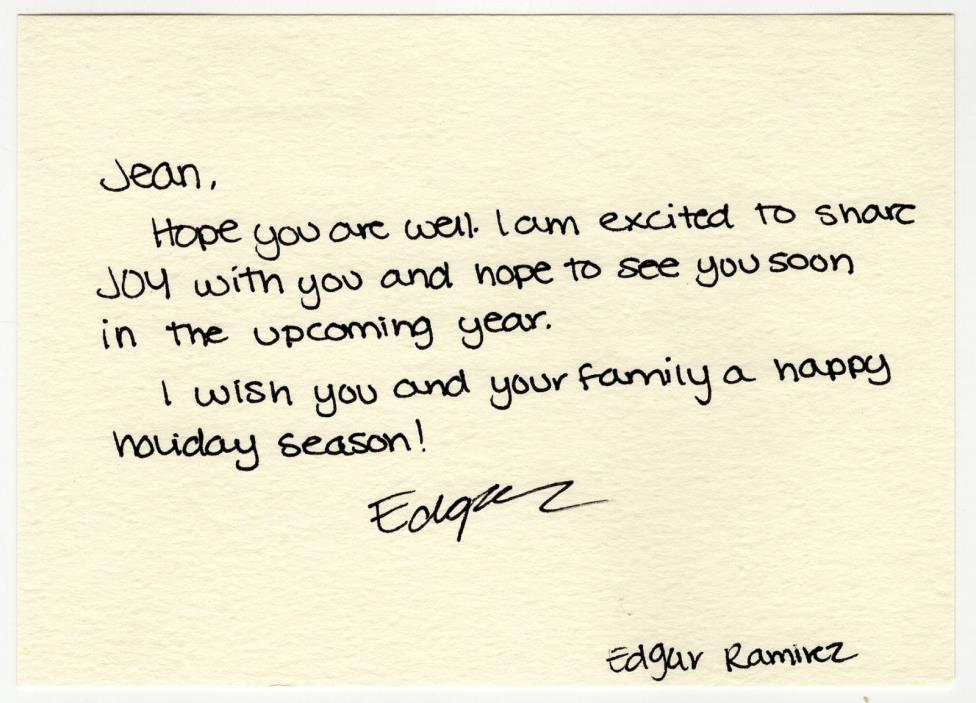 Jean,
Hope you are well. I am excited to share
JOY with you and hope to see you soon
in the upcoming year.
I wish you and your family a happy
holiday season!
Edgar
Edgar Ramirez